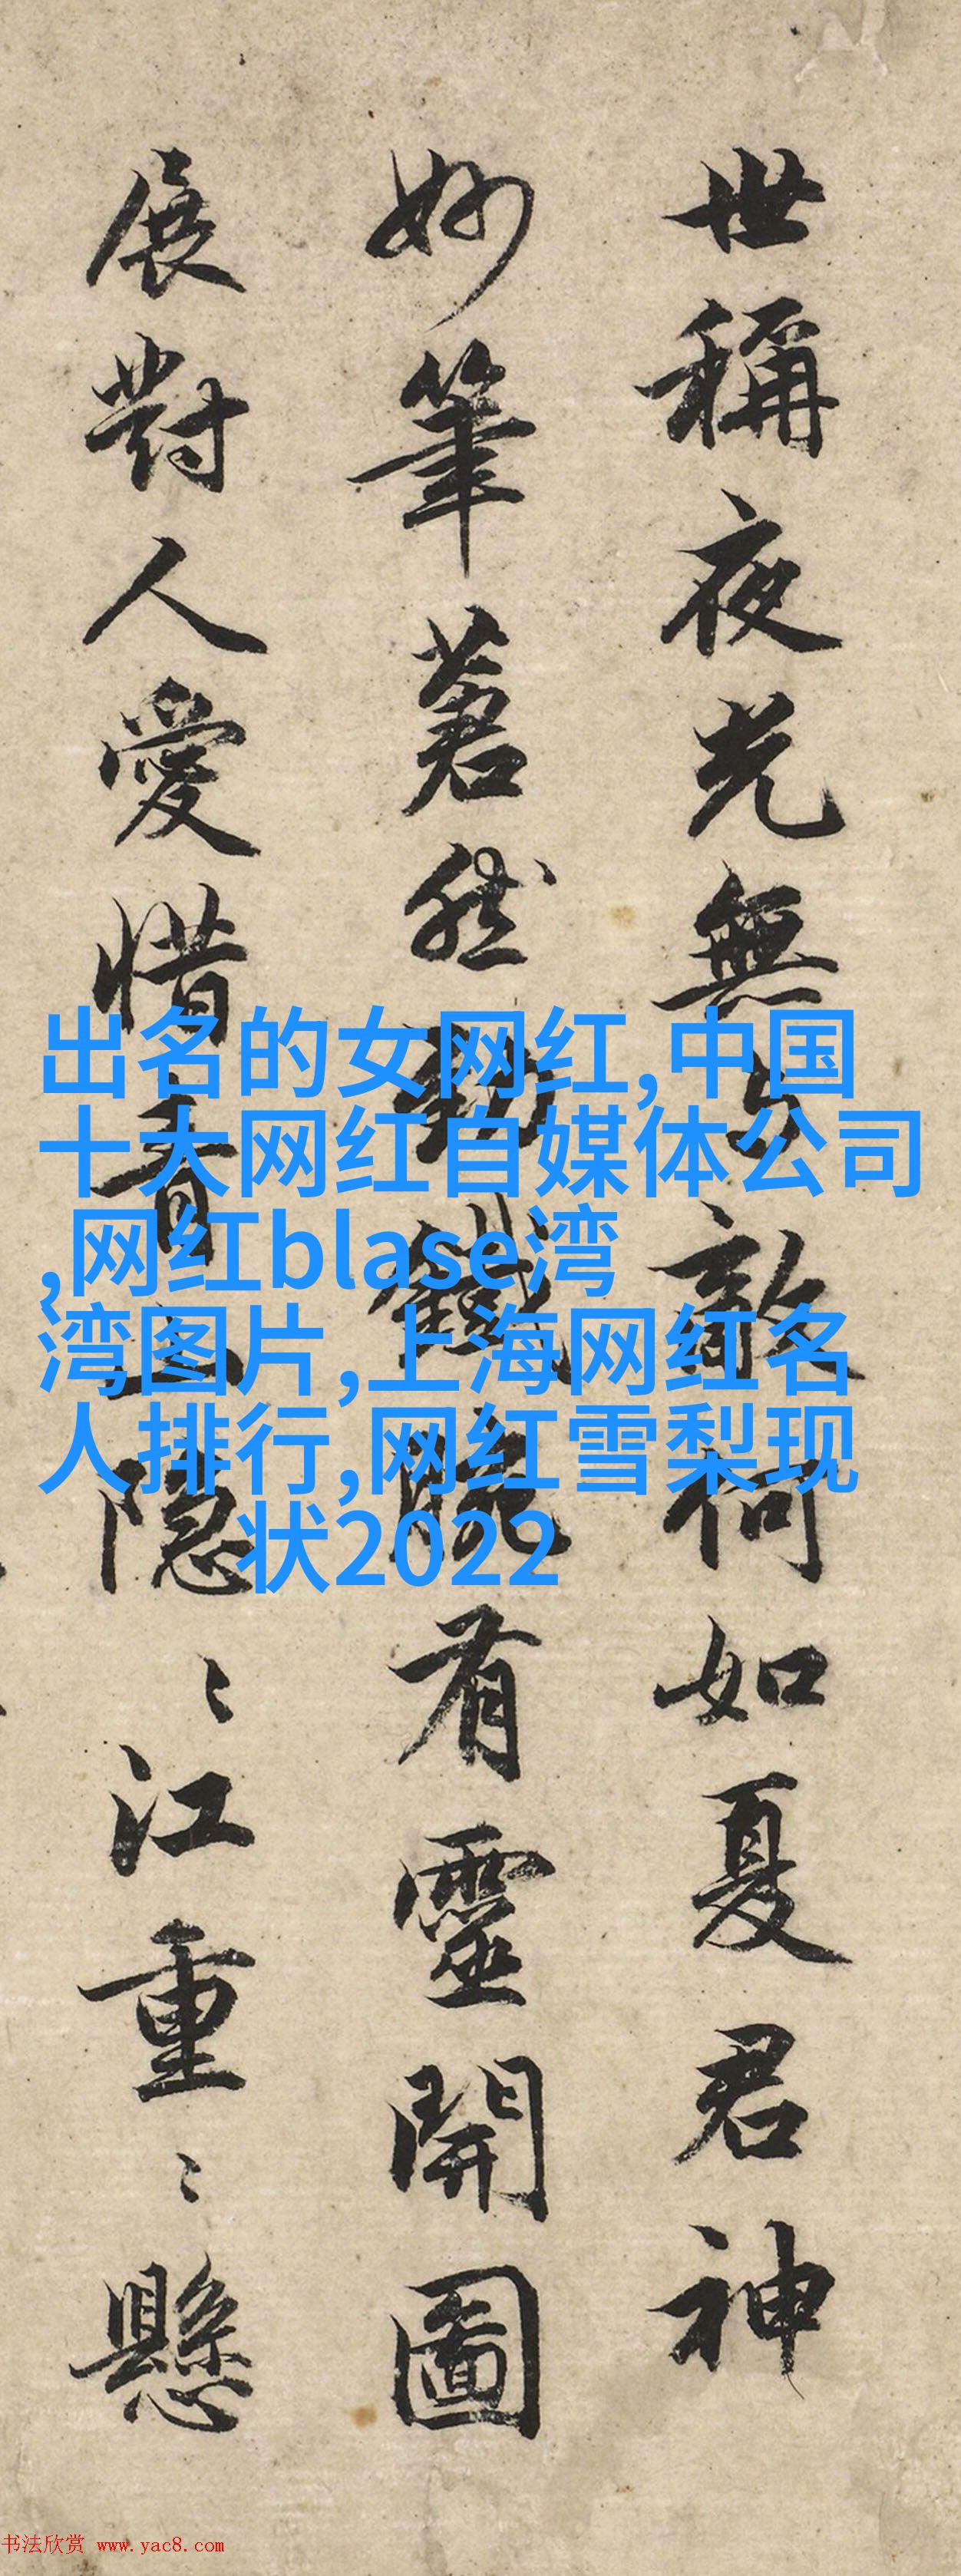 世稱夜光無与敵何如夏君神
妙筆蒼然勁鐵腕有靈開圖
展對人愛惜青山隱〻江重〻懸
出名的女网红,中国
十大网红自媒体公司
,网红blase湾
湾图片,上海网红名
人排行,网红雪梨现
状2022
书法欣赏 www.yac8.com